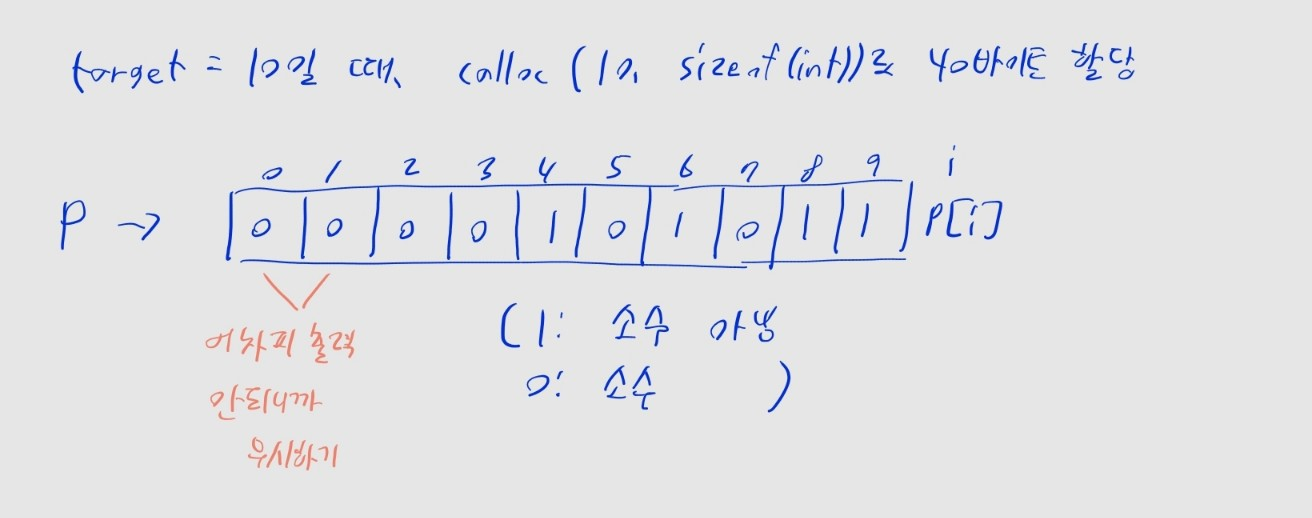 target = 10일 때, calloc (10, sizeof(int))로 40바이트 할당
0 1 2 3 4 5 6 7 8 9 i
P → 0 0 0 0 1 0 1 0 1 1 P[i]
어차피 출력
안되니까
무시하기
(1: 소수 아님
0: 소수 )